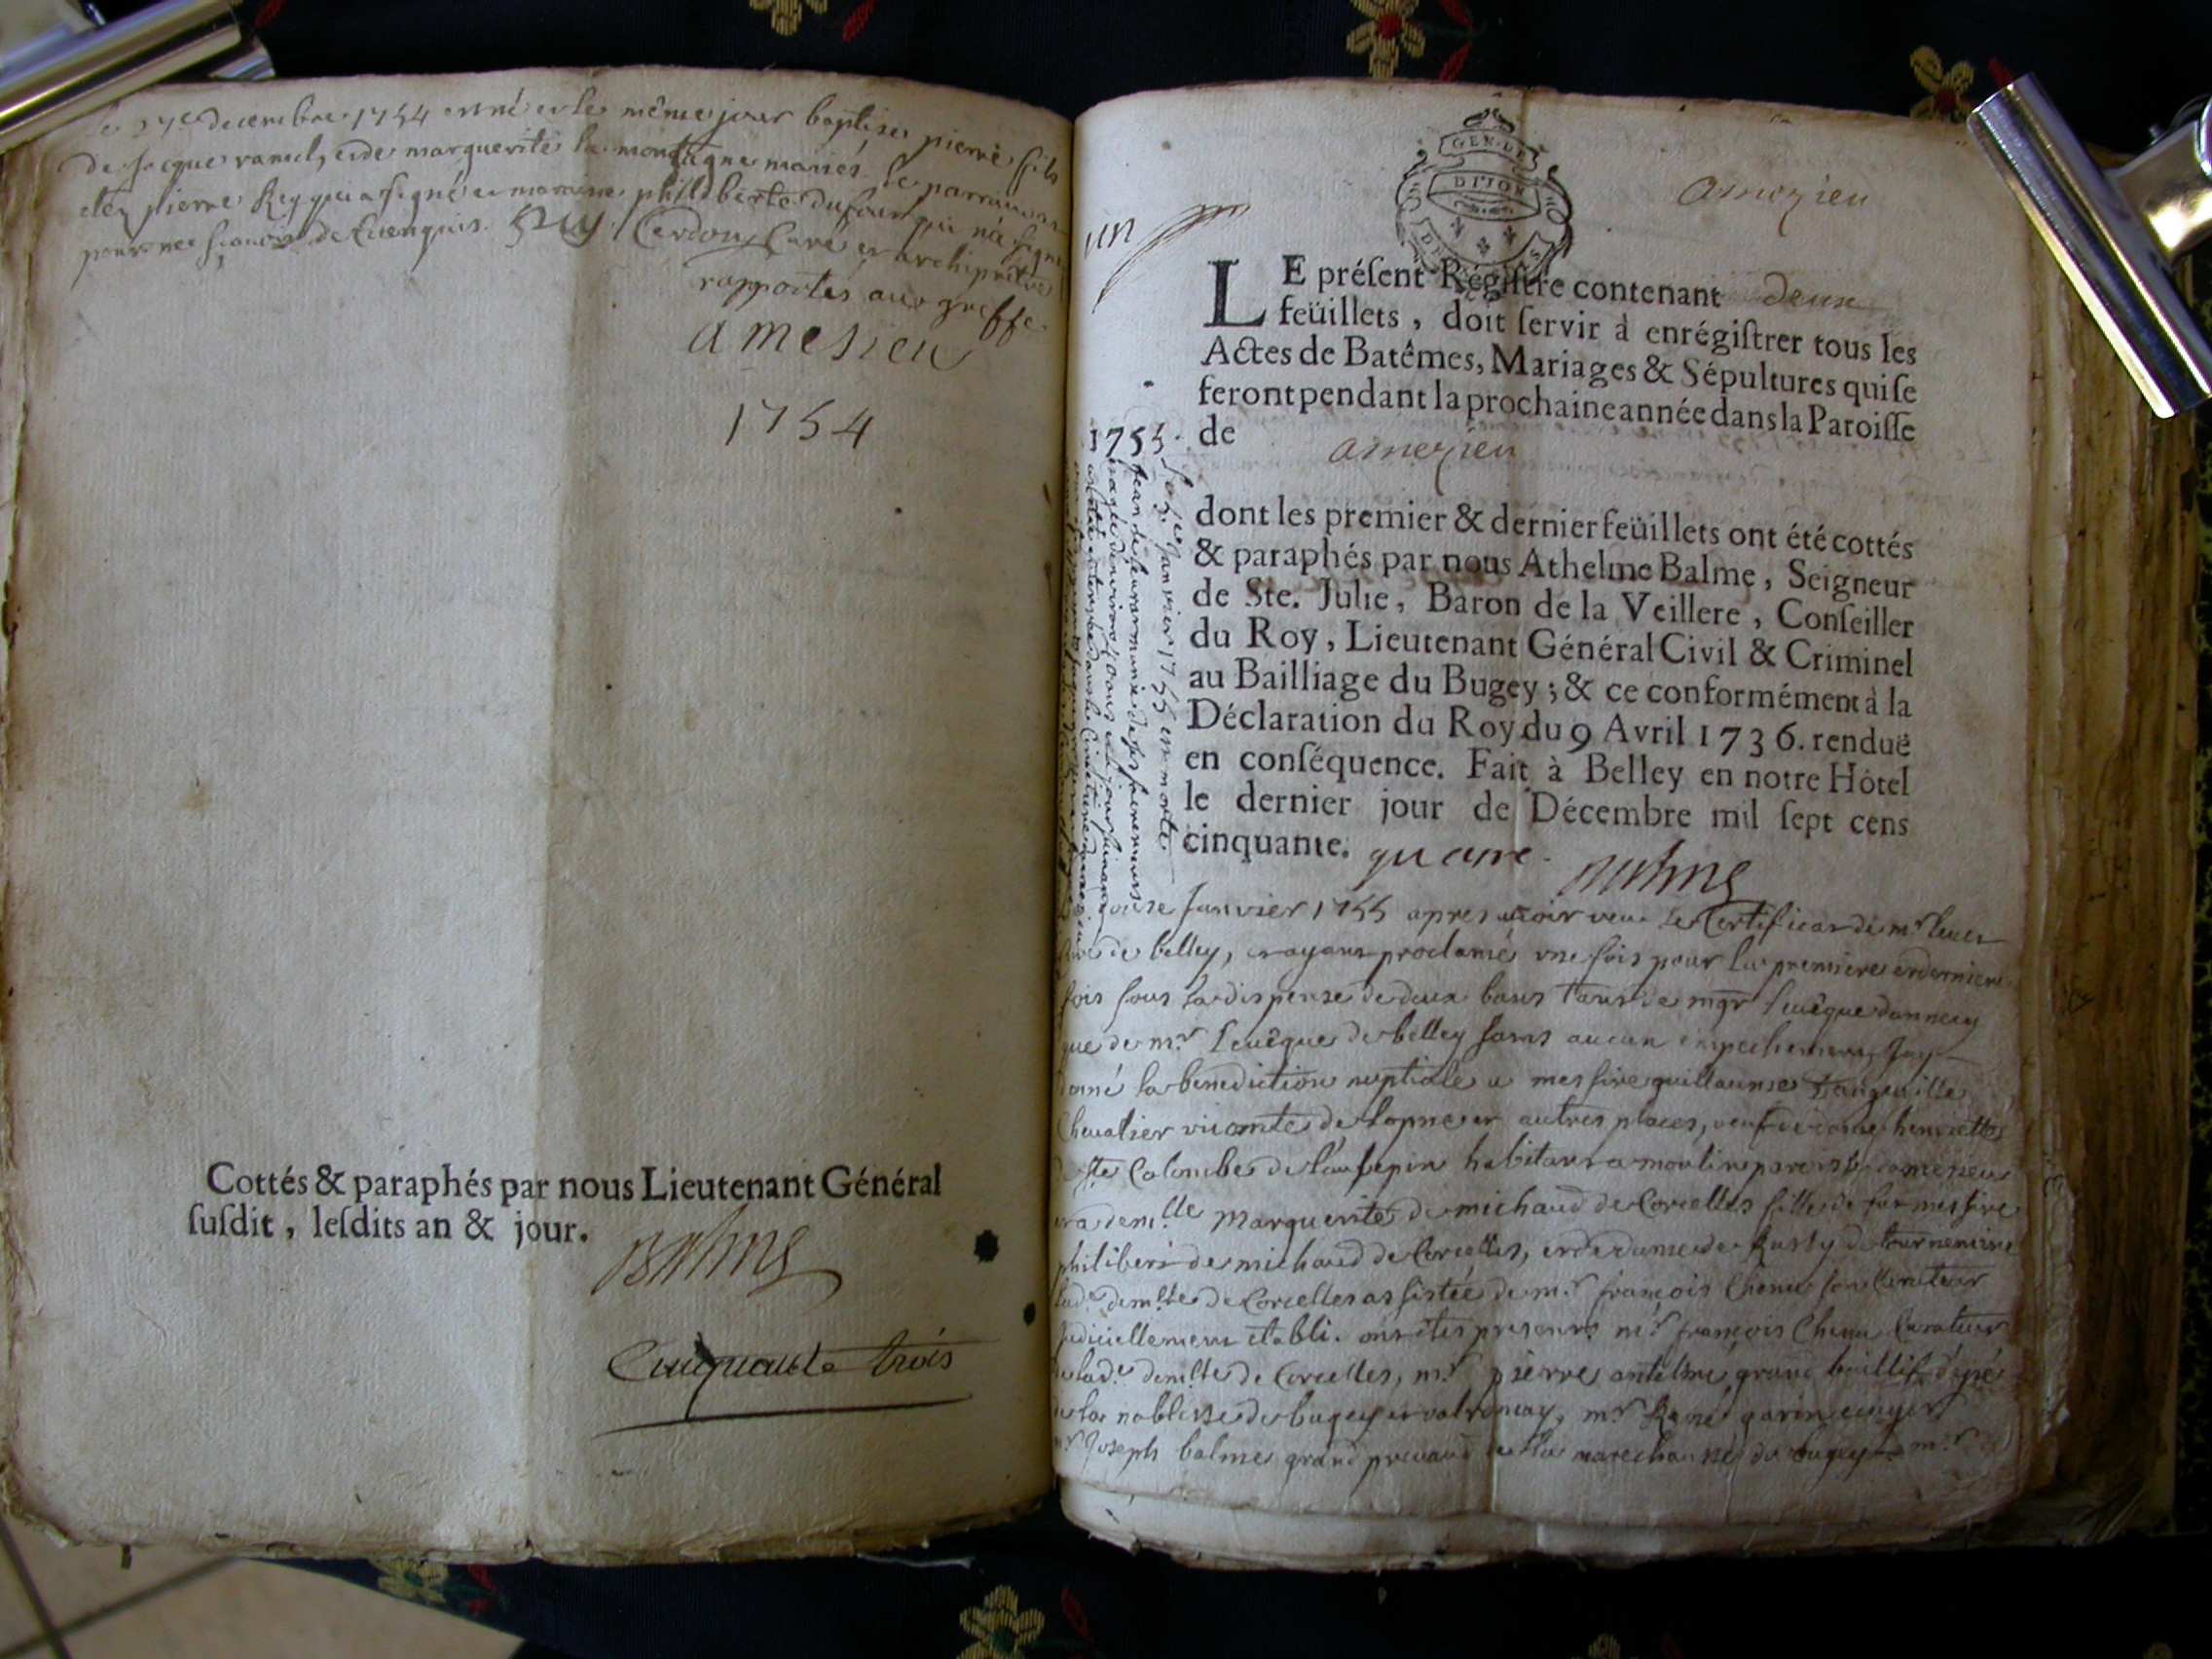 le 27e decembre 1754 est né et le même jour baptisé pierre fils
de Jacque ramel, et de marguerite la montagne mariés. le parrain
pierre Rey qui a signé et maraine philiberte dufour qui n'a signé
pour ne sçavoir de ce enquis. Rey Cerdon, Curé et archiprêtre
rapportés aux greffe
amesieu
1754
Cottés & paraphés par nous Lieutenant Général
ſuſdit, leſdits an & jour.
Balme
Cinquante trois
GEN. DE
DIJON
un
amezieu
LE préſent Régiſtre contenant deux
feüillets, doit ſervir à enrégiſtrer tous les
Actes de Batêmes, Mariages & Sépultures qui ſe
feront pendant la prochaine année dans la Paroiſſe
de amezieu
dont les premier & dernier feüillets ont été cottés
& paraphés par nous Athelme Balme, Seigneur
de Ste. Julie, Baron de la Veillere, Conſeiller
du Roy, Lieutenant Général Civil & Criminel
au Bailliage du Bugey; & ce conformément à la
Déclaration du Roy du 9 Avril 1736. renduë
en conſéquence. Fait à Belley en notre Hôtel
le dernier jour de Décembre mil ſept cens
cinquante. quatre. Balme
1755.
Janvier 1755 est morte
onze Janvier 1755 apres avoir veu le Certificat de mr
de belley, et ayant proclamé une fois pour la premiere et derniere
fois sous la dispense de deux bans tant de mgr l'evêque d'annecy
que de mr l'evêque de belley sans aucun empechement, J'ay
donné la benediction nuptiale a messire guillaume d'angeville
Chevalier vicomte de lopne et autres places, veuf de dame henriette
de ste Colombe de l'aubepin habitant a moulin paroisse d'amesieu
et a demlle Marguerite de michaud de Corcelles fille de feu messire
philibert de michaud de Corcelles, et de dame de tournemine
lade demlle de Corcelles assistée de mr françois Chenu son Curateur
judiciellement établi. ont étés presents mr françois Chenu Curateur
de lade demlle de Corcelles, mr pierre antelme grand baillif d'épée
de la noblesse de bugey et valromay, mr René garin ecuyer
mr Joseph balme grand prevaut de la marechaussée du bugey mr